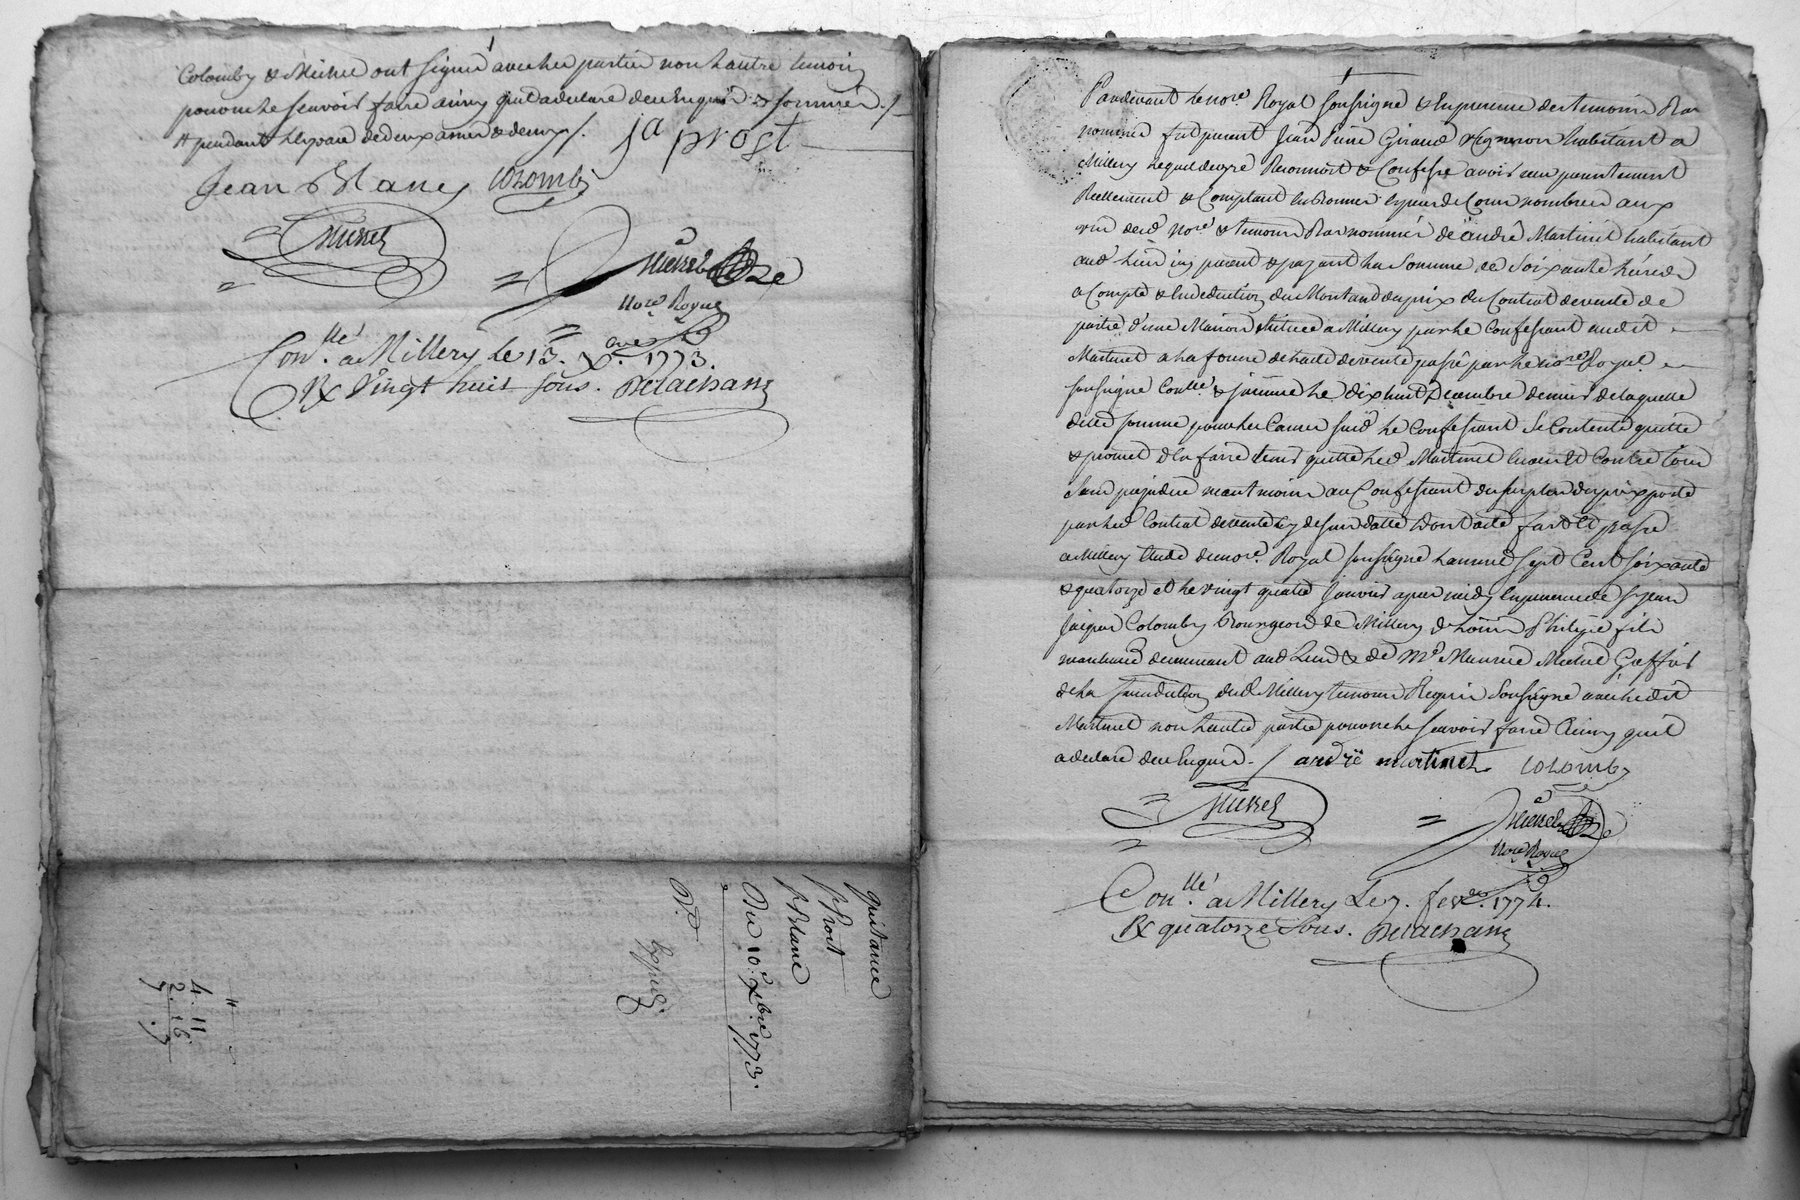 Colomby & Michel ont signé avec les parties non l'autre temoin
pour ne le scavoir faire ainsy qu'il a declaré de ce enquis & sommé ./.
# pendant l'espace de deux années & demy ./. ja prost
Jean Blanc colomby
Michel
Michel
No.re Royal
Con.llé a Millery le 13. X.bre 1773.
Rx Vingt huit sous. Delachann
quitance
Prost
Blanc
Du 10.e xbre 1773.
Exped.
"
4. 11
2. 16
7. 7
Pardevant le no.re Royal soussigné & En presence des temoins Bas
nommés fut present Jean Pierre Giraud vigneron habitant a
Millery lequel de gré Reconnoit & Confesse avoir reçu presentement
Reellement & Comptant En Bonnes Especes de Cours nombrées aux
vüe dud no.re & temoins Bas nommés de andré Martinet habitant
aud lieu icy present & payant la Somme de Soixante livres
a Compte & En deduction du Montant du prix du Contrat de vente de
partie d'une Maison située a Millery par le Confessant audit
Martinet a la forme de l'acte de vente passé par le no.re Royal
soussigné Con.llé & le dix huit Decembre dernier de laquelle
ditte somme pour les Causes susd le Confessant Se Contente quitte
& promet de la faire tenir quitte led Martinet Envers & Contre tous
Sans prejudice neantmoins au Confessant du surplus du prix porté
par led Contrat de vente de susd datte Dont acte fait et passé
a Millery Etude du no.re Royal soussigné l'an mil sept Cent soixante
& quatorze et le vingt quatre Janvier apres midy En presence de s.r Jean
Jacques Colomby Bourgeois de Millery & de Philipe fils
marchand demeurant aud Lieu & de M.e Maurice Michel Greffier
de la jurisdiction dud Millery temoins Requis Soussigné avec ledit
Martinet non l'autre partie pour ne le scavoir faire Ainsy qu'il
a declaré de ce Enquis. / andré martinet colomby
Michel
Michel
No.re Royal
Con.llé a Millery Le 7. fev.er 1774.
Rx quatorze Sous. Delachann